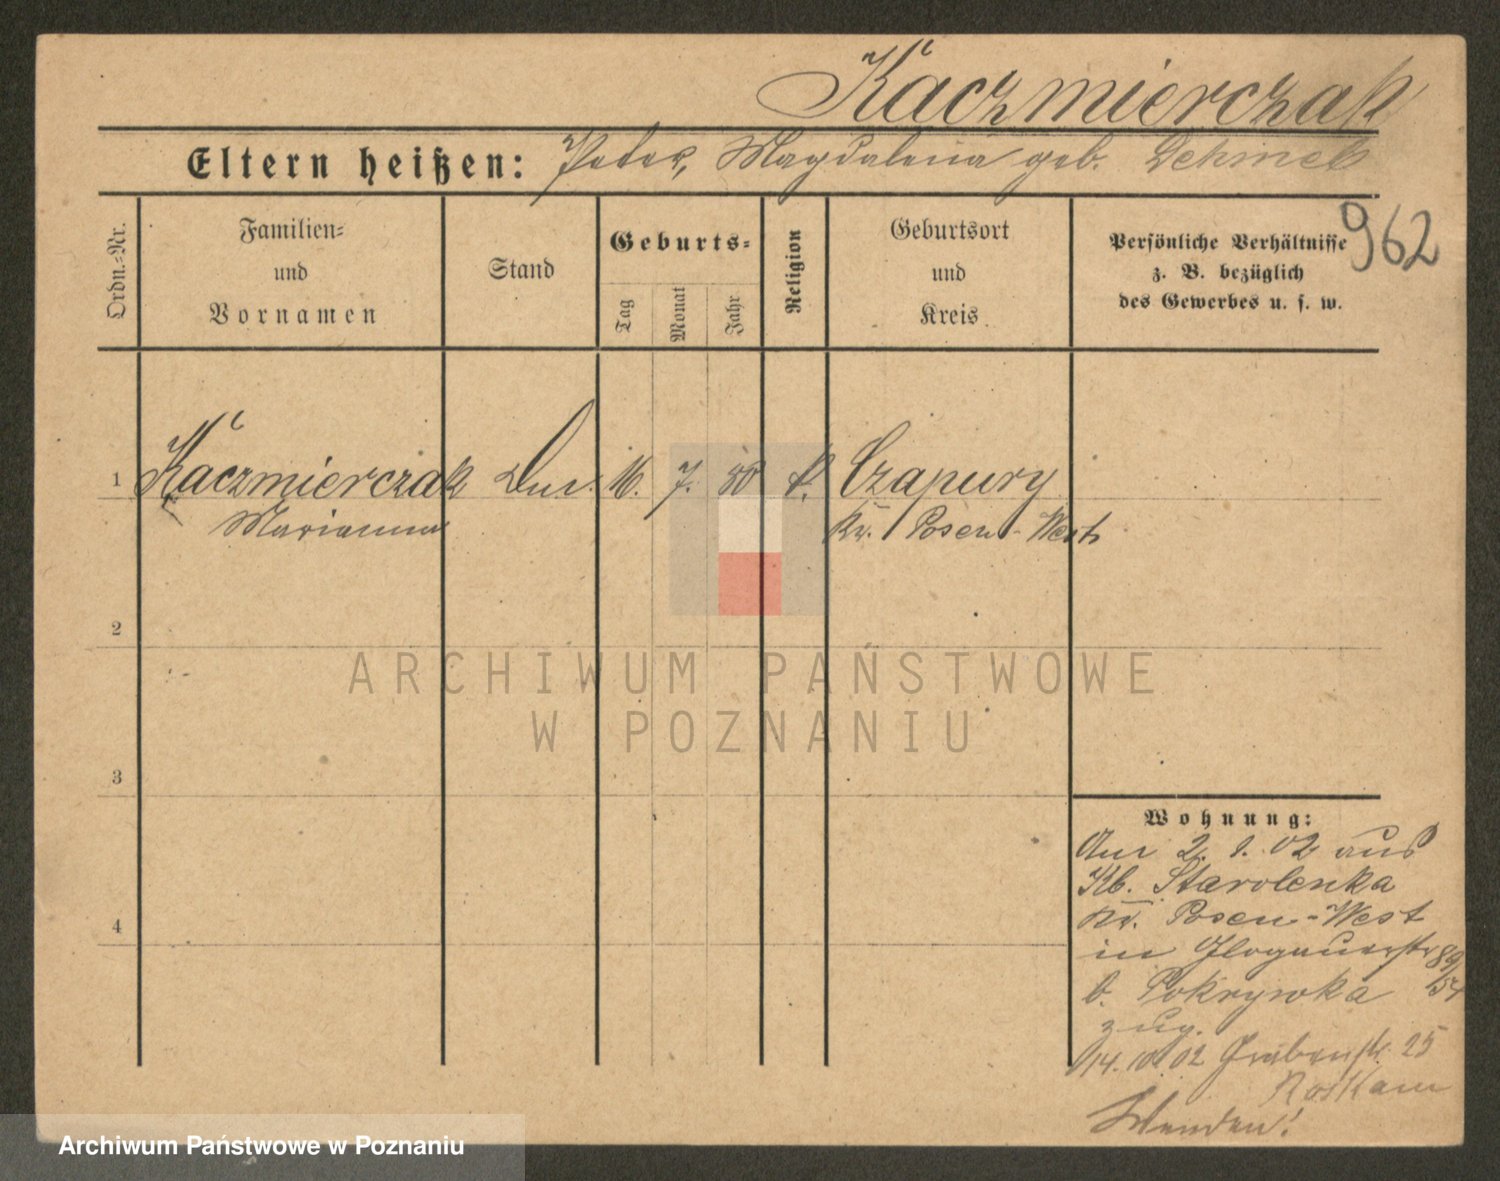 Kaczmierczak
Eltern heißen: Peter, Magdalena geb.
962
Ordn.-Nr.
Familien-
und
Vornamen
Stand
Geburts-
Tag
Monat
Jahr
Religion
Geburtsort
und
Kreis
Persönliche Verhältnisse
z. B. bezüglich
des Gewerbes u. s. w.
1 Kaczmierczak 16. 7. 80 k. Czapury
Marianna Kr. Posen-West
2
ARCHIWUM PAŃSTWOWE
W POZNANIU
3
Wohnung:
2. 1. 02 aus
Kb. Starolenka
Kr. Posen-West
4
in Glogauerstr 89/54
b. Pokrywka
zug.
14. 10. 02 Grabenstr. 25
Wenden!
Archiwum Państwowe w Poznaniu